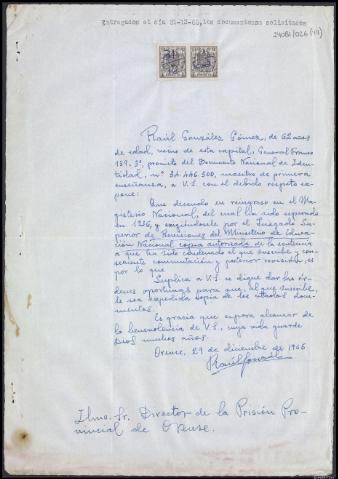 Entregados el día 31-12-65, los documentos solicitados
Raúl González Gómez, de 62 años
de edad, vecino de esta capital, General Franco
189-3º, provisto del Documento Nacional de Iden-
tidad, nº 34.446.500, maestro de primera
enseñanza, a V.S. con el debido respeto ex-
pone:
Que deseando su reingreso en el Ma-
gisterio Nacional, del cual ha sido separado
en 1936, y exigiéndosele por el Juzgado Su-
perior de Revisiones del Ministerio de Educa-
ción Nacional copia autorizada de la sentencia
a que ha sido condenado el que suscribe y con-
siguiente conmutación y posterior revisión, es
por lo que
Suplica a V.S. se digne dar las ór-
denes oportunas para que, al que suscribe,
le sea expedida copia de los citados docu-
mentos.
Es gracia que espera alcanzar de
la benevolencia de V.S., cuya vida guarde
Dios muchos años.
Orense, 29 de diciembre de 1965
Raúl González
Ilmo. Sr. Director de la Prisión Pro-
vincial de Orense.